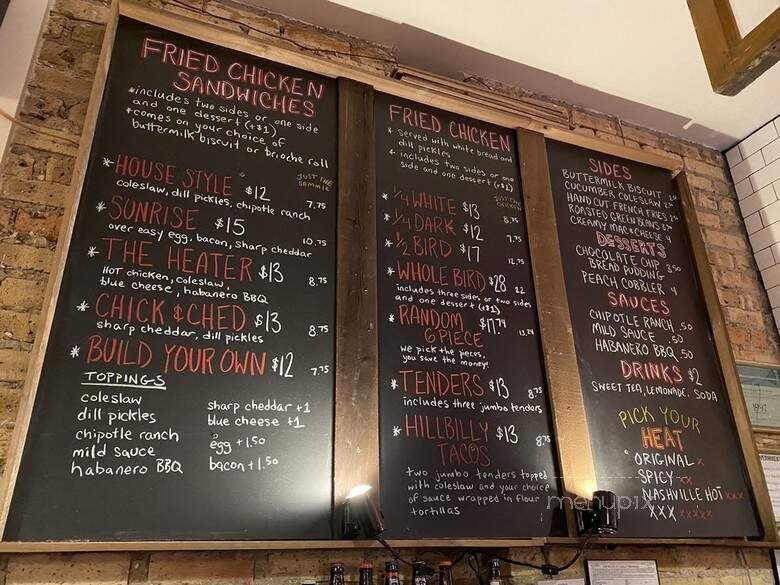 FRIED CHICKEN
SANDWICHES
*includes two sides or one side
and one dessert (+$1)
*comes on your choice of
buttermilk biscuit or brioche roll
JUST THE
SAMMIE
* HOUSE STYLE $12
coleslaw, dill pickles, chipotle ranch 7.75
* SUNRISE $15
over easy egg, bacon, sharp cheddar 10.75
* THE HEATER $13
HOT chicken, coleslaw, 8.75
blue cheese, habanero BBQ
* CHICK & CHED $13
sharp cheddar, dill pickles 8.75
* BUILD YOUR OWN $12 7.75
TOPPINGS
coleslaw
dill pickles
chipotle ranch
mild sauce
habanero BBQ
sharp cheddar +1
blue cheese +1
egg +1.50
bacon +1.50
FRIED CHICKEN
* served with white bread and
dill pickles
* includes two sides or one
side and one dessert (+$1)
JUST THE
CHICKEN
* 1/4 WHITE $13 8.75
* 1/4 DARK $12 7.75
* 1/2 BIRD $17 12.75
* WHOLE BIRD $28 22
includes three sides or two sides
and one dessert (+$1)
* RANDOM $17.74
6 PIECE
we pick the pieces,
you save the money!
* TENDERS $13 8.75
includes three jumbo tenders
* HILLBILLY $13 8.75
TACOS
two jumbo tenders topped
with coleslaw and your choice
of sauce wrapped in flour
tortillas
SIDES
BUTTERMILK BISCUIT
CUCUMBER COLESLAW
HAND CUT FRENCH FRIES
ROASTED GREEN BEANS
CREAMY MAC & CHEESE 4
DESSERTS
CHOCOLATE CHIP 3.50
BREAD PUDDING
PEACH COBBLER 4
SAUCES
CHIPOTLE RANCH .50
MILD SAUCE .50
HABANERO BBQ .50
DRINKS $2
SWEET TEA, LEMONADE, SODA
PICK YOUR
HEAT
ORIGINAL x
SPICY xx
NASHVILLE HOT xxx
XXX xxxxx
menupix
1997